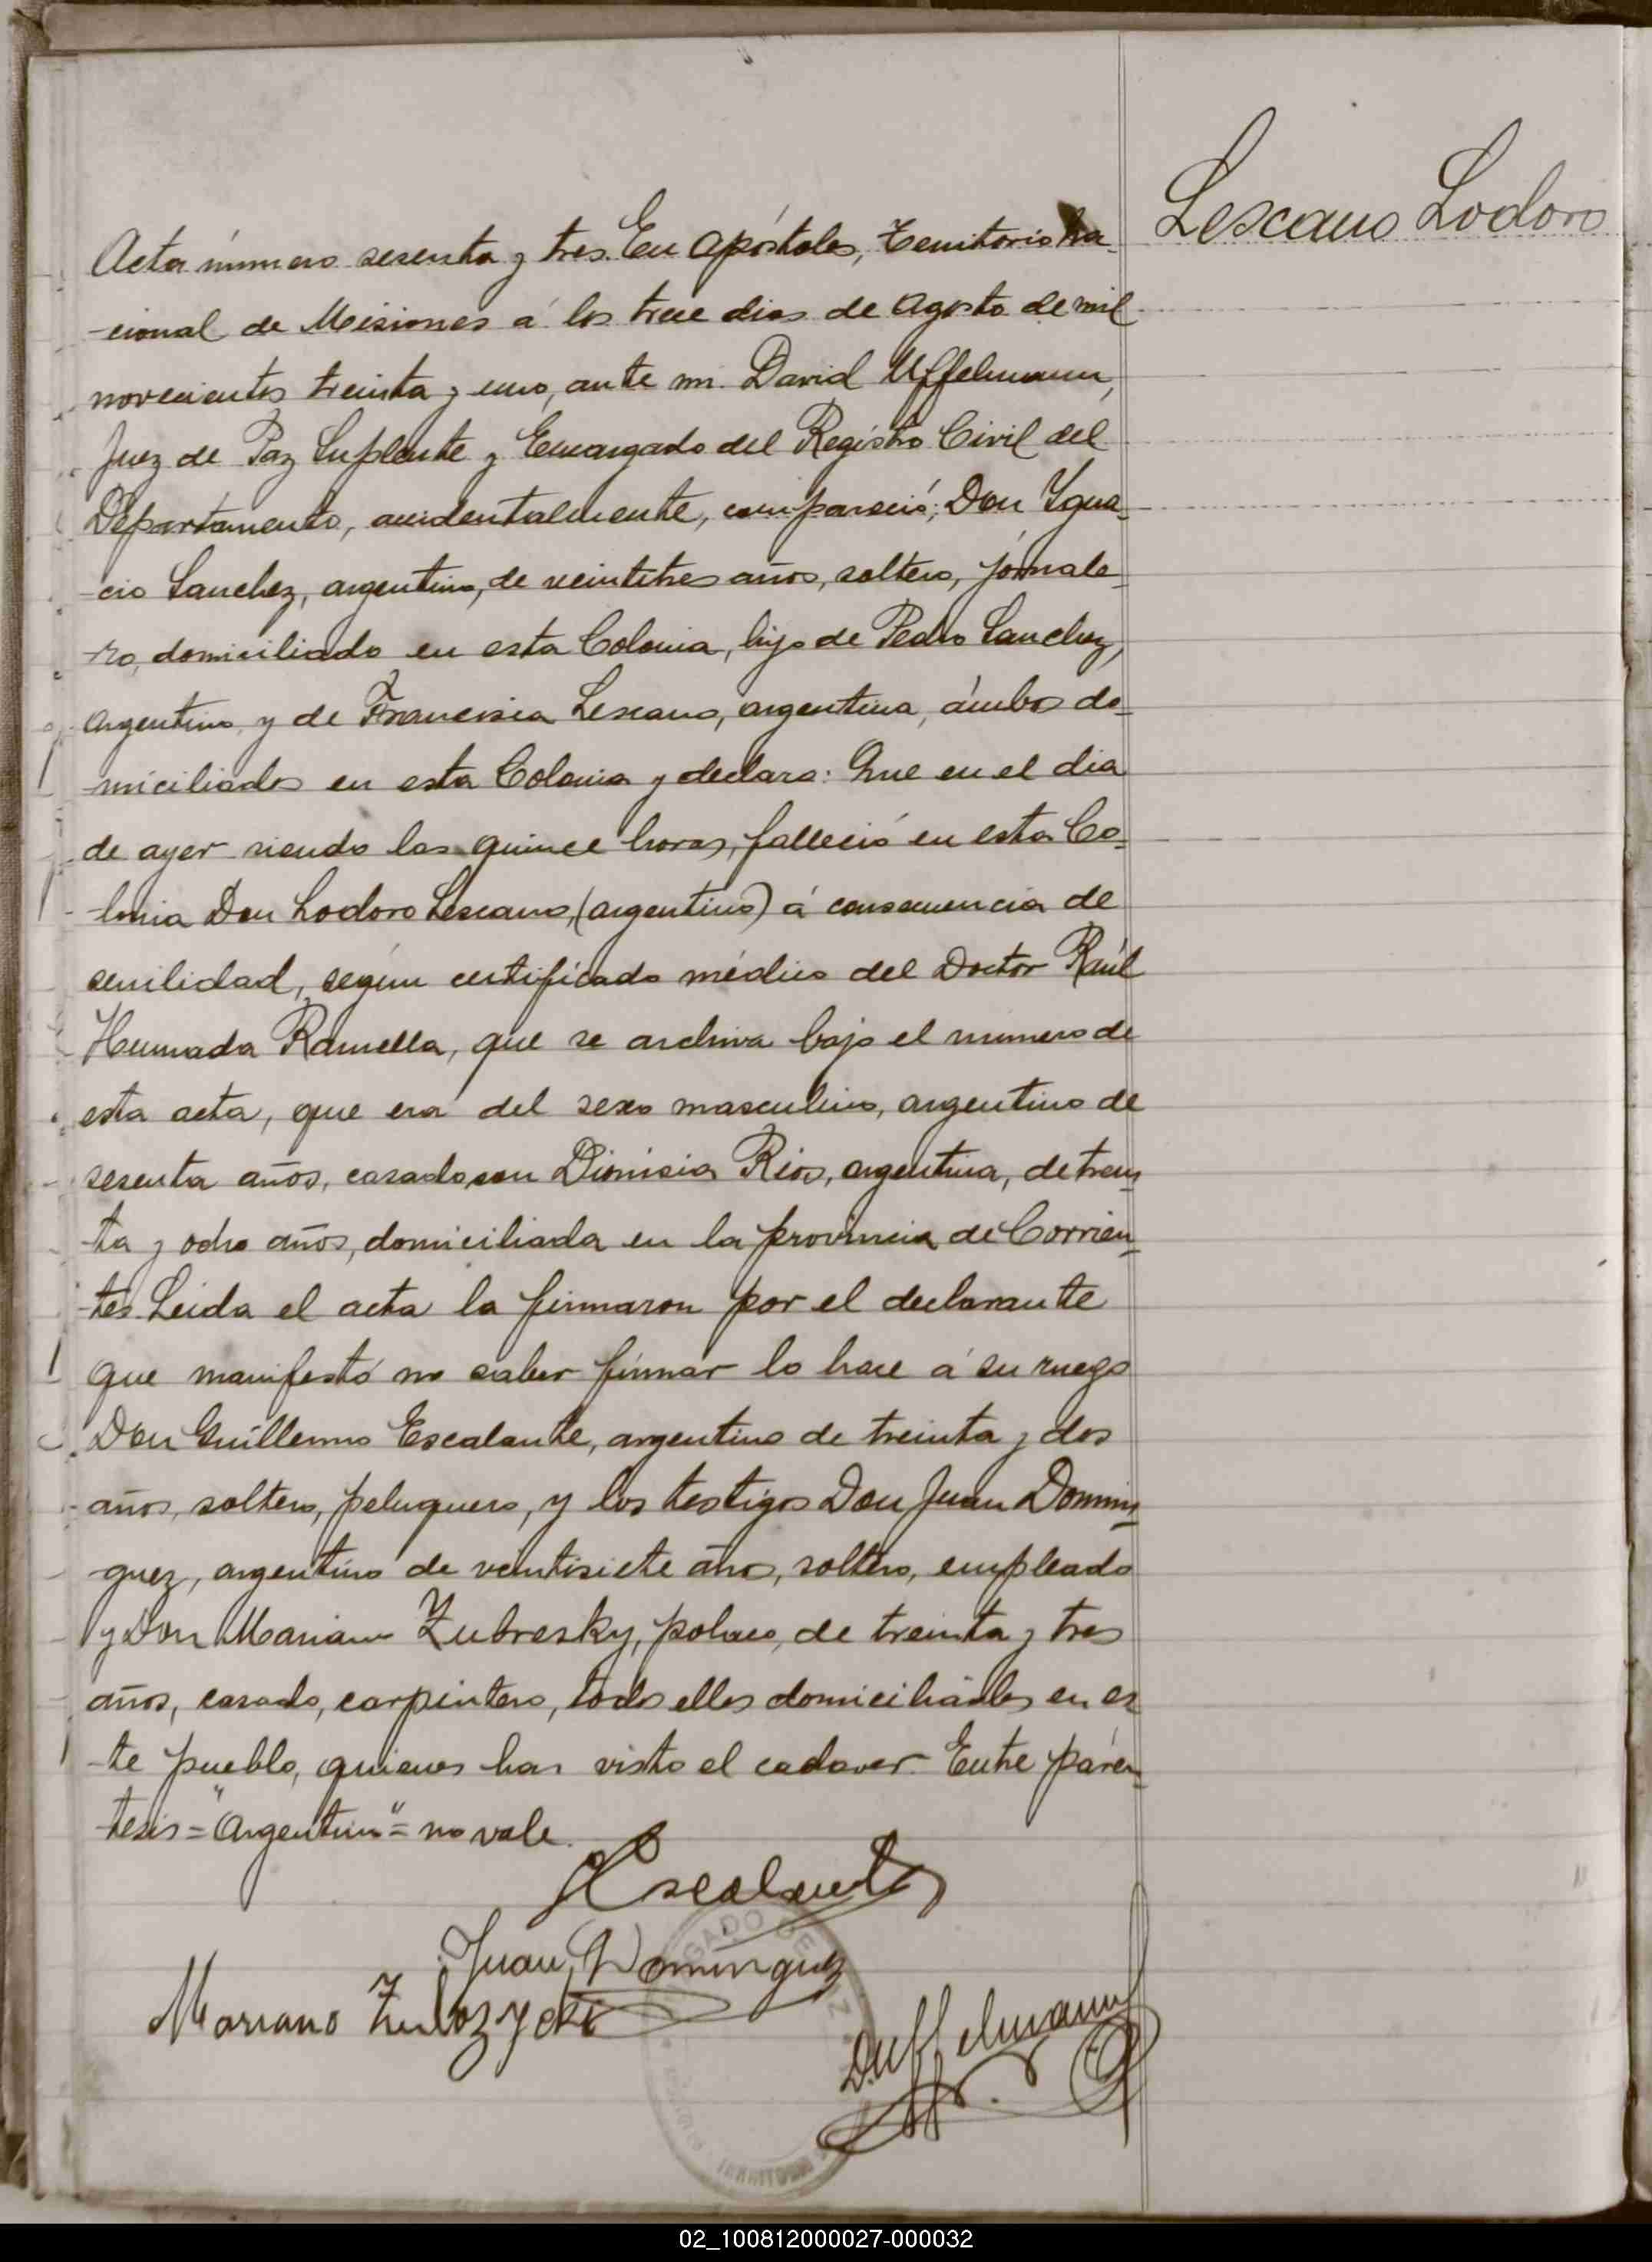 Lescano Lodoro
Acta número sesenta y tres. En Apóstoles, Territorio Na-
-cional de Misiones á los trece dias de Agosto de mil
novecientos treinta y uno, ante mi David Uffelmann,
Juez de Paz Suplente y Encargado del Registro Civil del
Departamento, accidentalmente, compareció; Don Igna-
-cio Sanchez, argentino, de veintitres años, soltero, jornale-
-ro, domiciliado en esta Colonia, hijo de Pedro Sanchez,
argentino y de Francisca Lescano, argentina, ámbos do-
miciliados en esta Colonia y declara: Que en el dia
de ayer siendo las quince horas, falleció en esta Co-
-lonia Don Lodoro Lescano, (argentino) á consecuencia de
senilidad, según certificado médico del Doctor Raúl
Humada Ramella, que se archiva bajo el numero de
esta acta, que era del sexo masculino, argentino de
sesenta años, casado con Dionisia Rios, argentina, de trein-
-ta y ocho años, domiciliada en la provincia de Corrien-
-tes. Leida el acta la firmaron por el declarante
que manifestó no saber firmar lo hace á su ruego
Don Guillermo Escalante, argentino de treinta y dos
años, soltero, peluquero, y los testigos Don Juan Domin-
guez, argentino de ventisiete años, soltero, empleado
y Don Mariano Zubresky, polaco, de treinta y tres
años, casado, carpintero, todos ellos domiciliados en es
-te pueblo, quienes han visto el cadaver. Entre parén-
tesis = "Argentino" = no vale.
Escalante
Juan Dominguez
Mariano
D. Uffelmann
02_100812000027-000032